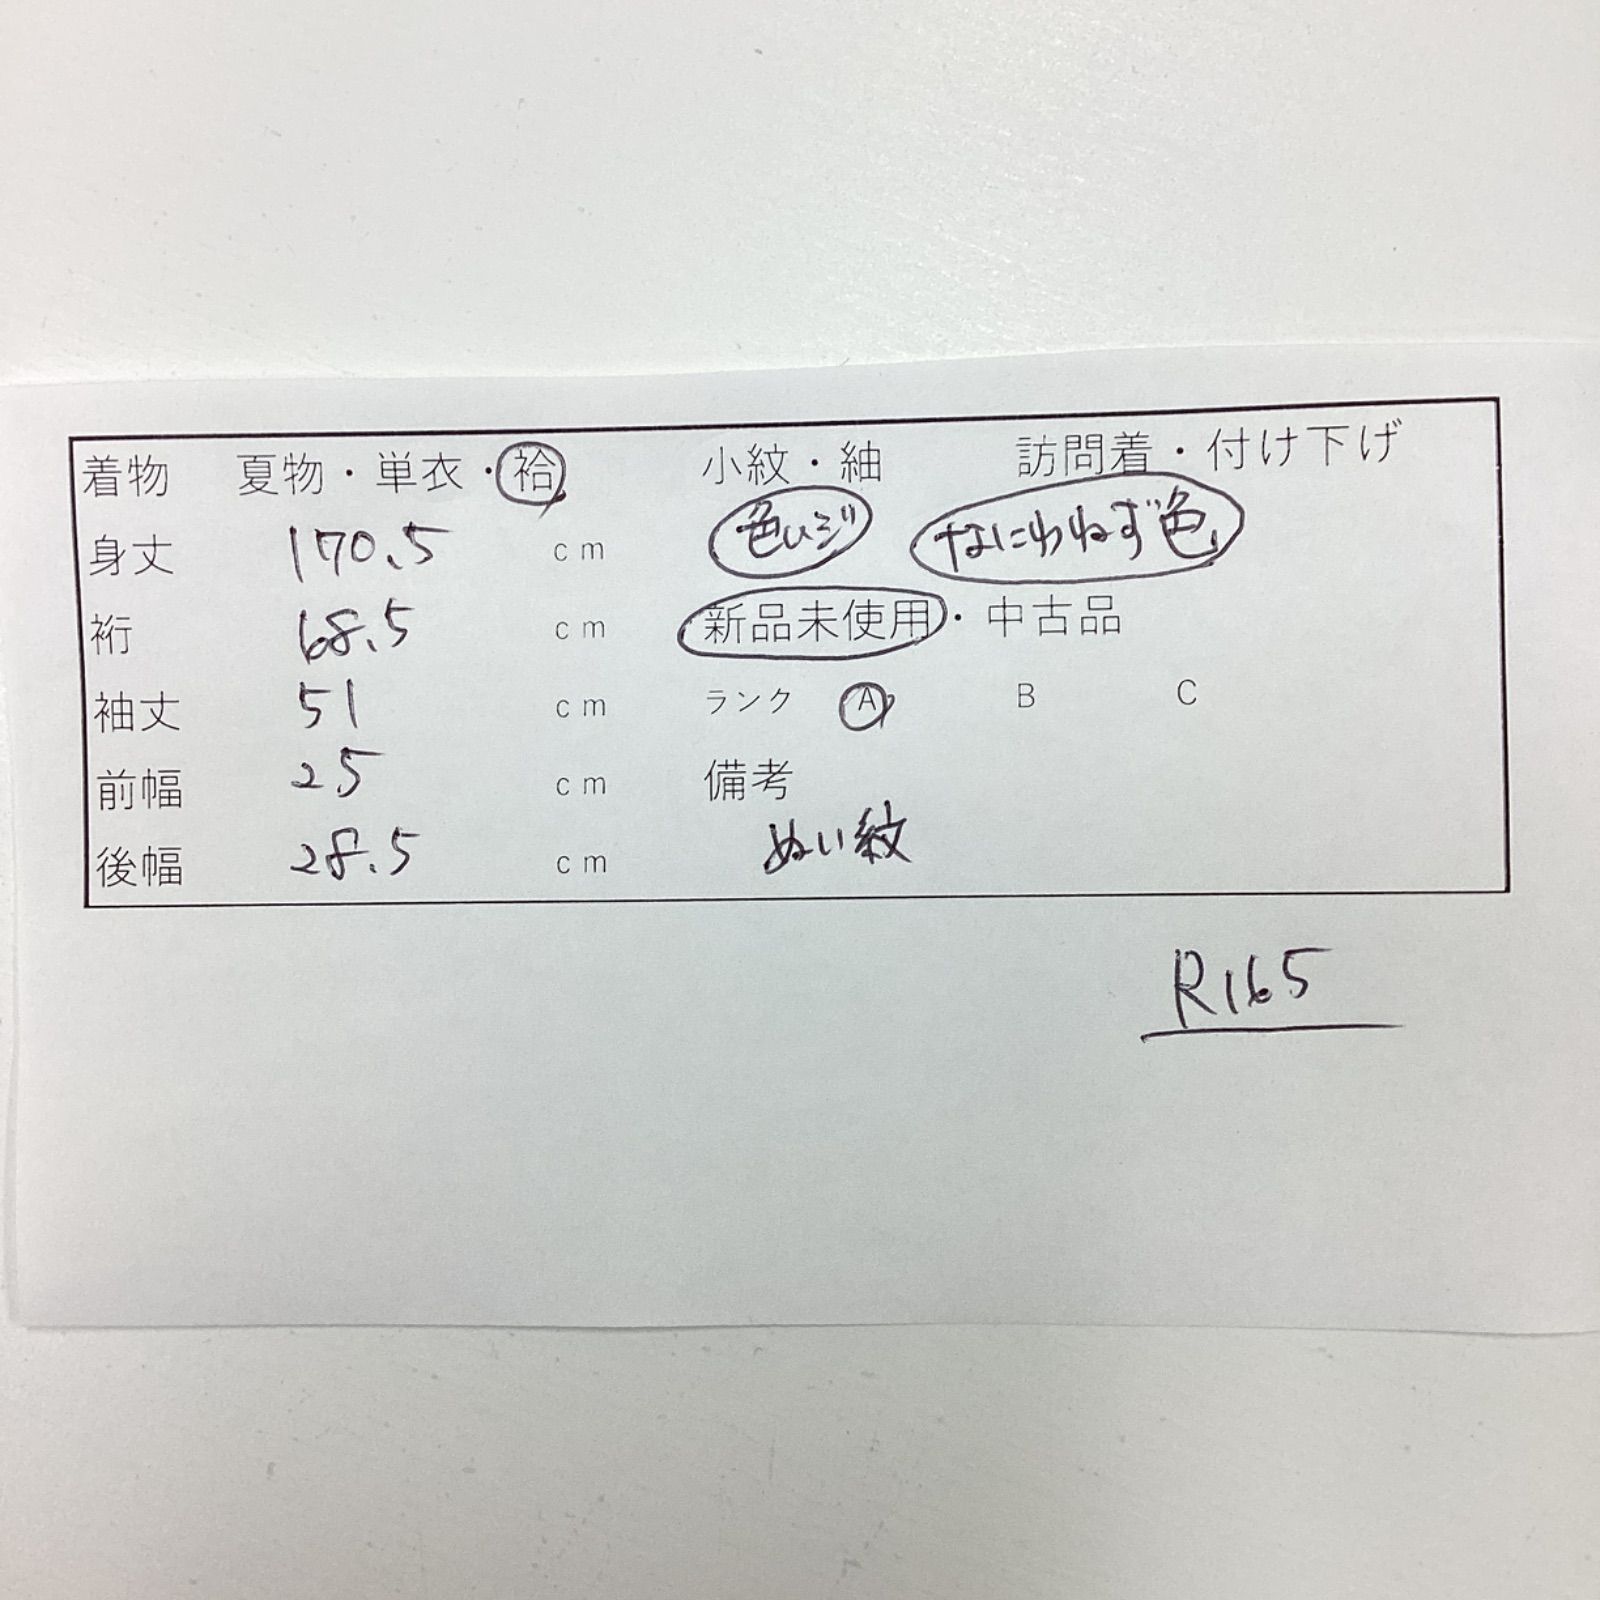 着物 夏物・単衣・袷 小紋・紬 訪問着・付け下げ
身丈 170.5 cm 色ムジ なにわねず色
裄 68.5 cm 新品未使用・中古品
袖丈 51 cm ランク A B C
前幅 25 cm 備考
後幅 28.5 cm ぬい紋
R165